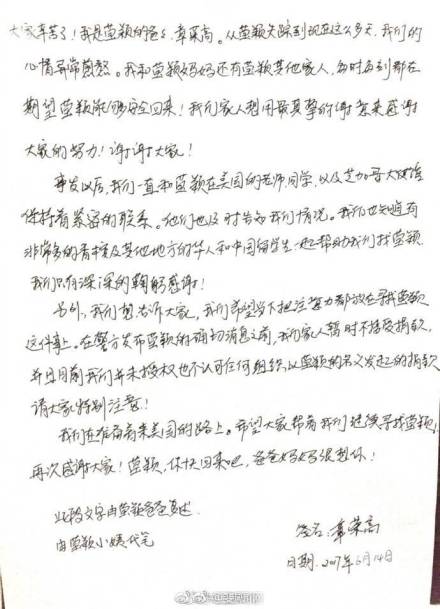 大家辛苦了！我是莹颖的爸爸，章荣高。从莹颖失踪到现在这么多天，我们的
心情异常煎熬。我和莹颖妈妈还有莹颖其他家人，每时每刻都在
期望莹颖能够安全回来！我们家人想用最真挚的谢意来感谢
大家的努力！谢谢大家！
事发以后，我们一直和莹颖在美国的老师同学，以及芝加哥大使馆
保持着紧密的联系。他们也及时告知我们情况。我们也知道有
非常多的香槟及其他地方的华人和中国留学生一起帮助我们找莹颖
我们只有深深的鞠躬感谢！
另外，我们想告诉大家，我们希望当下把注意力都放在寻找莹颖
这件事上。在警方发布莹颖的确切消息之前，我们家人暂时不接受捐款，
并且目前我们并未授权也不认可任何组织以莹颖的名义发起的捐款
请大家特别注意！
我们正在准备着来美国的路上。希望大家帮着我们继续寻找莹颖！
再次感谢大家！莹颖，你快回来吧，爸爸妈妈很想你！
此段文字由莹颖爸爸口述
由莹颖小姨代笔
签名：章荣高
日期：2017年6月14日